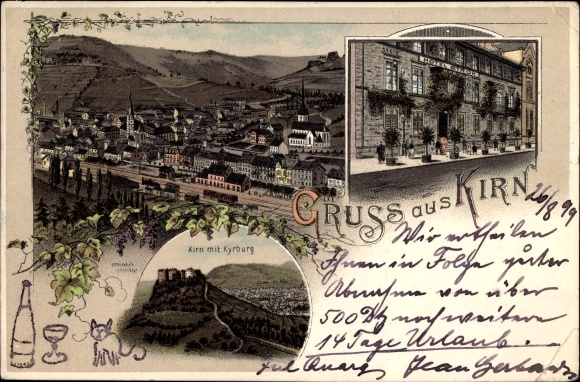 HOTEL
GRUSS aus KIRN
26/8 99
Kirn mit Kyrburg
Wir ertheilen
Ihnen in Folge guter
Abnahme von über
500 noch weitere
14 Tage Urlaub.
Jean